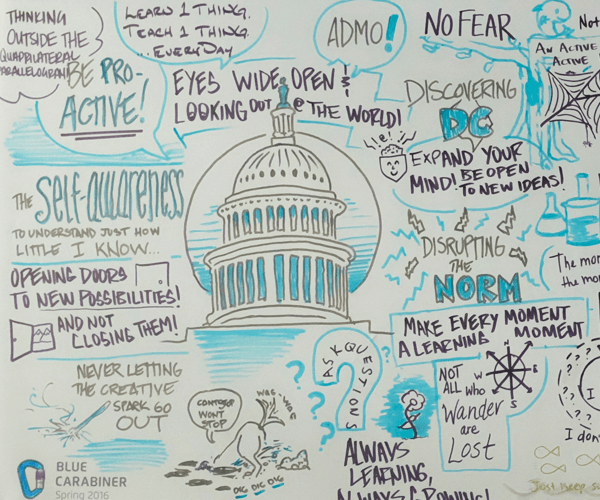 THINKING
OUTSIDE THE
QUADRILATERAL
PARALLELOGRAM
LEARN 1 THING.
TEACH 1 THING.
...EVERYDAY
BE PRO-
ACTIVE!
EYES WIDE OPEN!
LOOKING OUT @ THE WORLD!
ADMO!
NO FEAR
Not
AN ACTIVE
ACTIVE
DISCOVERING
DC
EXPAND YOUR
MIND! BE OPEN
TO NEW IDEAS!
THE Self-awareness
TO UNDERSTAND JUST HOW
LITTLE I KNOW...
OPENING DOORS
TO NEW POSSIBILITIES!
AND NOT
CLOSING THEM!
DISRUPTING
THE
NORM
The mor
the mo
MAKE EVERY MOMENT
A LEARNING MOMENT
NEVER LETTING
THE CREATIVE
SPARK GO
OUT
WON'T
STOP
WAG. WAG
DIG DIG DIG
ASK QUESTIONS
NOT
ALL WHO
Wander
are
Lost
N
W
E
S
I
I don
ALWAYS
LEARNING,
ALWAYS GROWING!
Just keep s
BLUE
CARABINER
Spring 2016